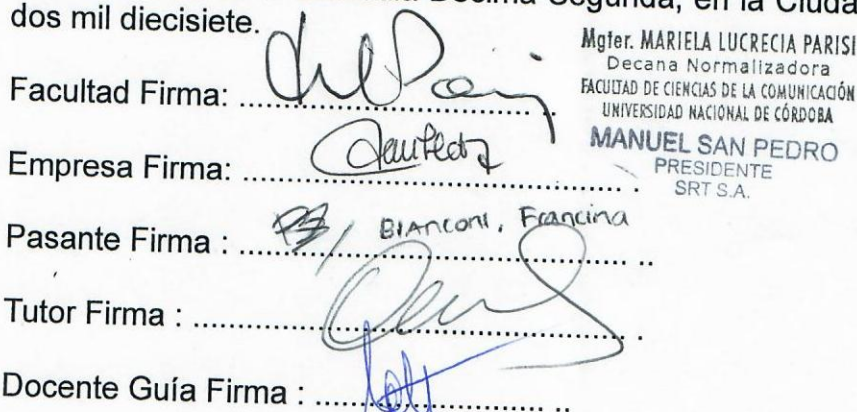 Décima Segunda, en la Ciuda
dos mil diecisiete.
Mgter. MARIELA LUCRECIA PARISI
Decana Normalizadora
FACULTAD DE CIENCIAS DE LA COMUNICACIÓN
UNIVERSIDAD NACIONAL DE CÓRDOBA
Facultad Firma: ....................................
MANUEL SAN PEDRO
PRESIDENTE
SRT S.A.
Empresa Firma: .............................................. .
Pasante Firma : ............................................... ..
BIANCONI, Francina
Tutor Firma : ................................................... .
Docente Guía Firma : ............................. ..